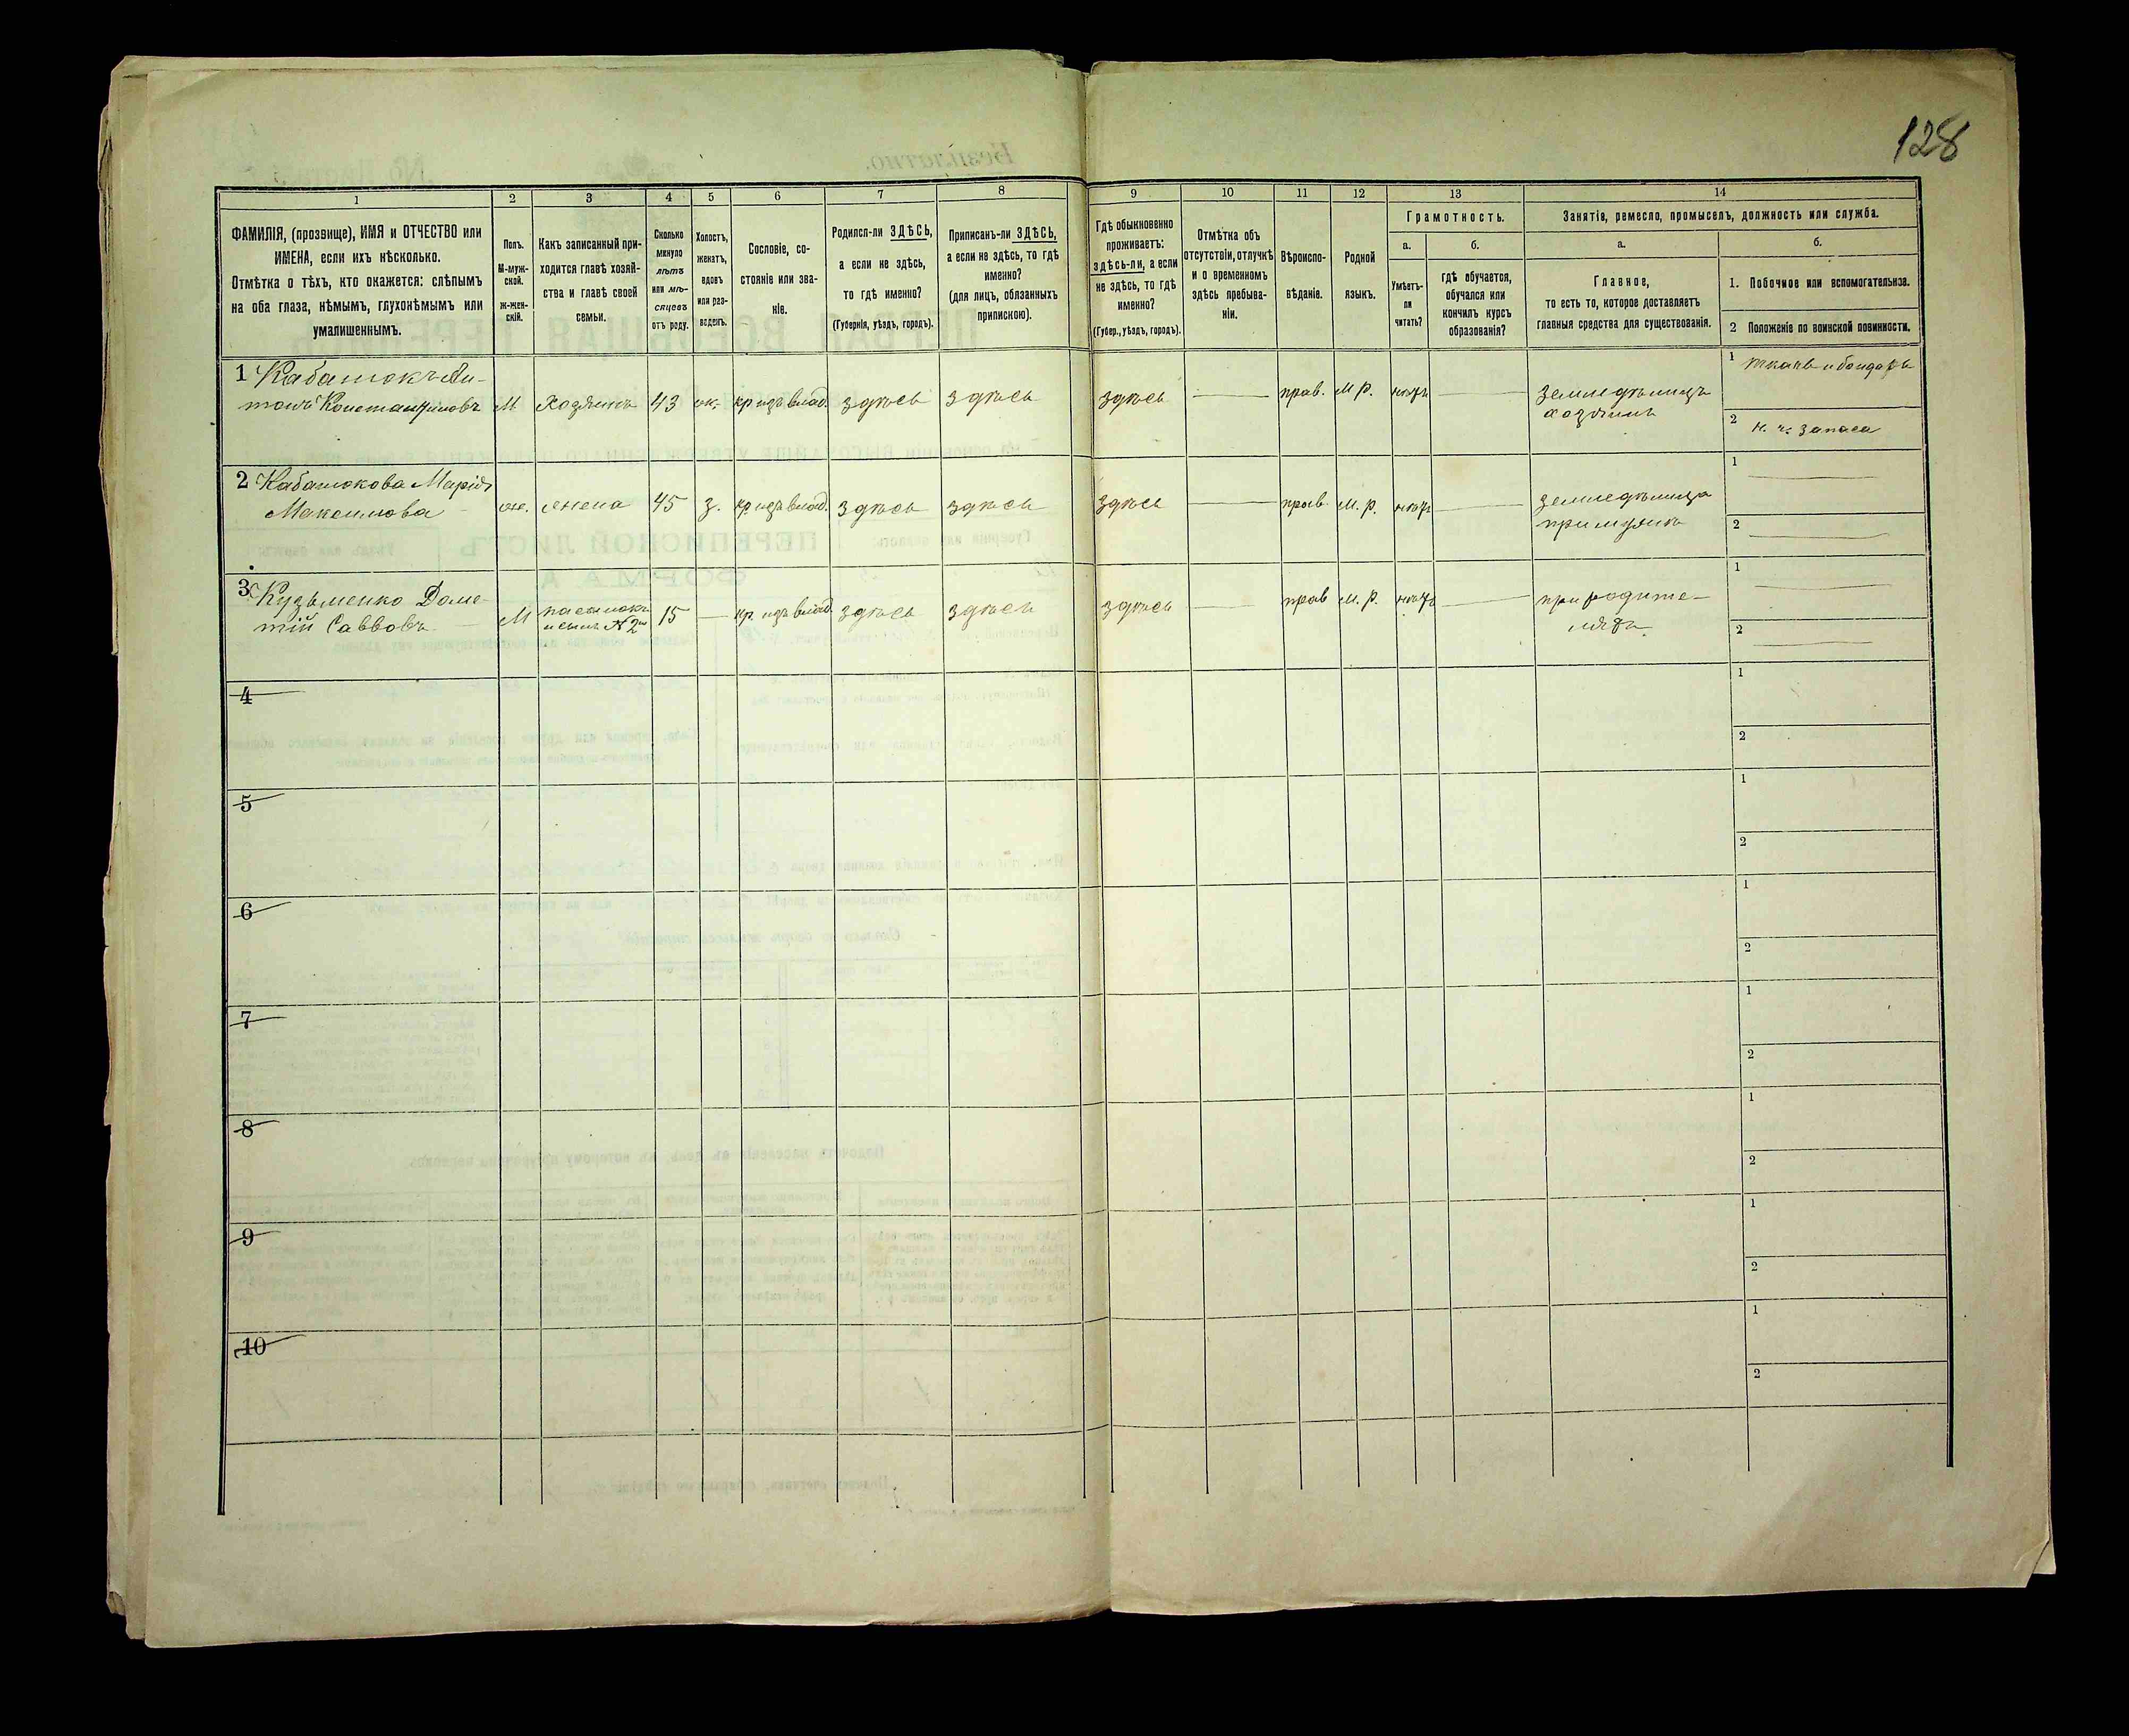 128
1 2 3 4 5 6 7 8 9 10 11 12 13 14
ФАМИЛІЯ, (прозвище), ИМЯ и ОТЧЕСТВО или
ИМЕНА, если ихъ нѣсколько.
Отмѣтка о тѣхъ, кто окажется: слѣпымъ
на оба глаза, нѣмымъ, глухонѣмымъ или
умалишеннымъ.
Полъ.
М-муж-
ской.
ж-жен-
скій.
Какъ записанный при-
ходится главѣ хозяй-
ства и главѣ своей
семьи.
Сколько
минуло
лѣтъ
или мѣ-
сяцевъ
отъ роду.
Холостъ,
женатъ,
вдовъ
или раз-
веденъ.
Сословіе, со-
стояніе или зва-
ніе.
Родился-ли ЗДѢСЬ,
а если не здѣсь,
то гдѣ именно?
(Губернія, уѣздъ, городъ).
Приписанъ-ли ЗДѢСЬ,
а если не здѣсь, то гдѣ
именно?
(для лицъ, обязанныхъ
припискою).
Гдѣ обыкновенно
проживаетъ:
здѣсь-ли, а если
не здѣсь, то гдѣ
именно?
(Губер., уѣздъ, городъ).
Отмѣтка объ
отсутствіи, отлучкѣ
и о временномъ
здѣсь пребыва-
ніи.
Вѣроиспо-
вѣданіе.
Родной
языкъ.
Грамотность.
а.
Умѣетъ-
ли
читать?
б.
гдѣ обучается,
обучался или
кончилъ курсъ
образованія?
Занятія, ремесло, промыселъ, должность или служба.
а.
Главное,
то есть то, которое доставляетъ
главныя средства для существованія.
б.
1. Побочное или вспомогательное.
2 Положеніе по воинской повинности.
1 Кабатюкъ Ан-
тонъ Константиновъ М Хозяинъ 43 ж. кр. изъ влад. здѣсь здѣсь здѣсь — прав. м. р. нѣтъ —
земледѣлецъ
хозяинъ
1 ткачъ и бондарь
2 н. ч. запаса
2 Кабатюкова Марія
Максимова ж. жена 45 з. кр. изъ влад. здѣсь здѣсь здѣсь — прав. м. р. нѣтъ —
земледѣлица
при мужѣ
1 —
2 —
3 Кузьменко Доме-
тій Саввовъ М пасынокъ
и сынъ № 2го 15 — кр. изъ влад. здѣсь здѣсь здѣсь — прав м. р. нѣтъ —
при родите-
ляхъ
1 —
2 —
4
1
2
5
1
2
6
1
2
7
1
2
8
1
2
9
1
2
10
1
2